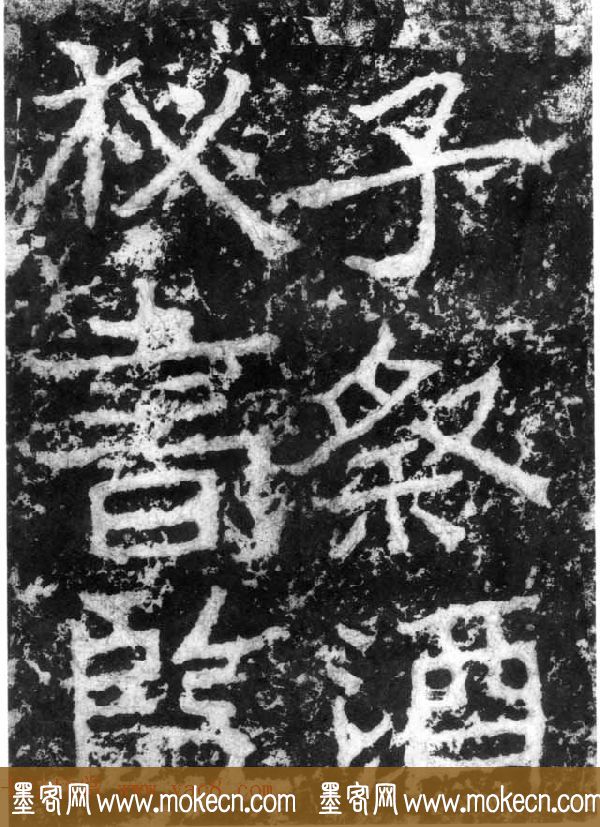 子祭酒
秘書監
墨客网 www.mokecn.com 墨客网 www.mokecn.com